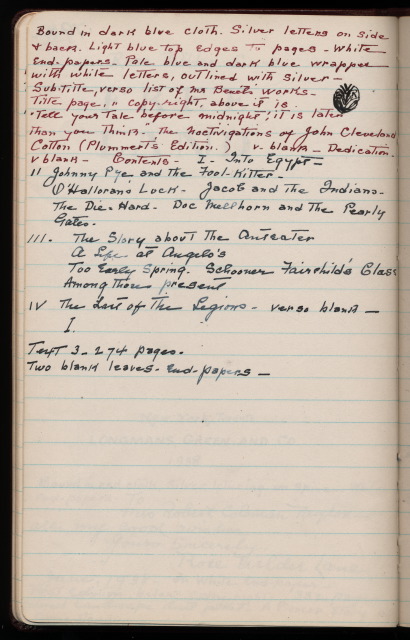 Bound in dark blue cloth. Silver letters on side
& back. Light blue top edges to pages - White
End-papers. Pale blue and dark blue wrapper
with white letters, outlined with silver -
Sub-title, verso list of Mr Benét's works -
Title page, " copy-right, above it is.
"Tell your Tale before midnight; it is later
than you think". The Noctivigations of John Cleveland
Cotton (Plummer's Edition.) v-blank - Dedication.
v blank - Contents - I - Into Egypt -
II Johnny Pye and the Fool-Killer -
O'Halloran's Luck - Jacob and the Indians -
The Die-Hard - Doc Mellhorn and the Pearly
Gates.
III. The Story about The Anteater
A Life at Angelo's
Too Early Spring. Schooner Fairchild's Class
Among those present
IV The Last of the Legions - verso blank -
I.
Text 3 - 274 pages.
Two blank leaves - End-papers -
LONGMANS GREEN AND CO